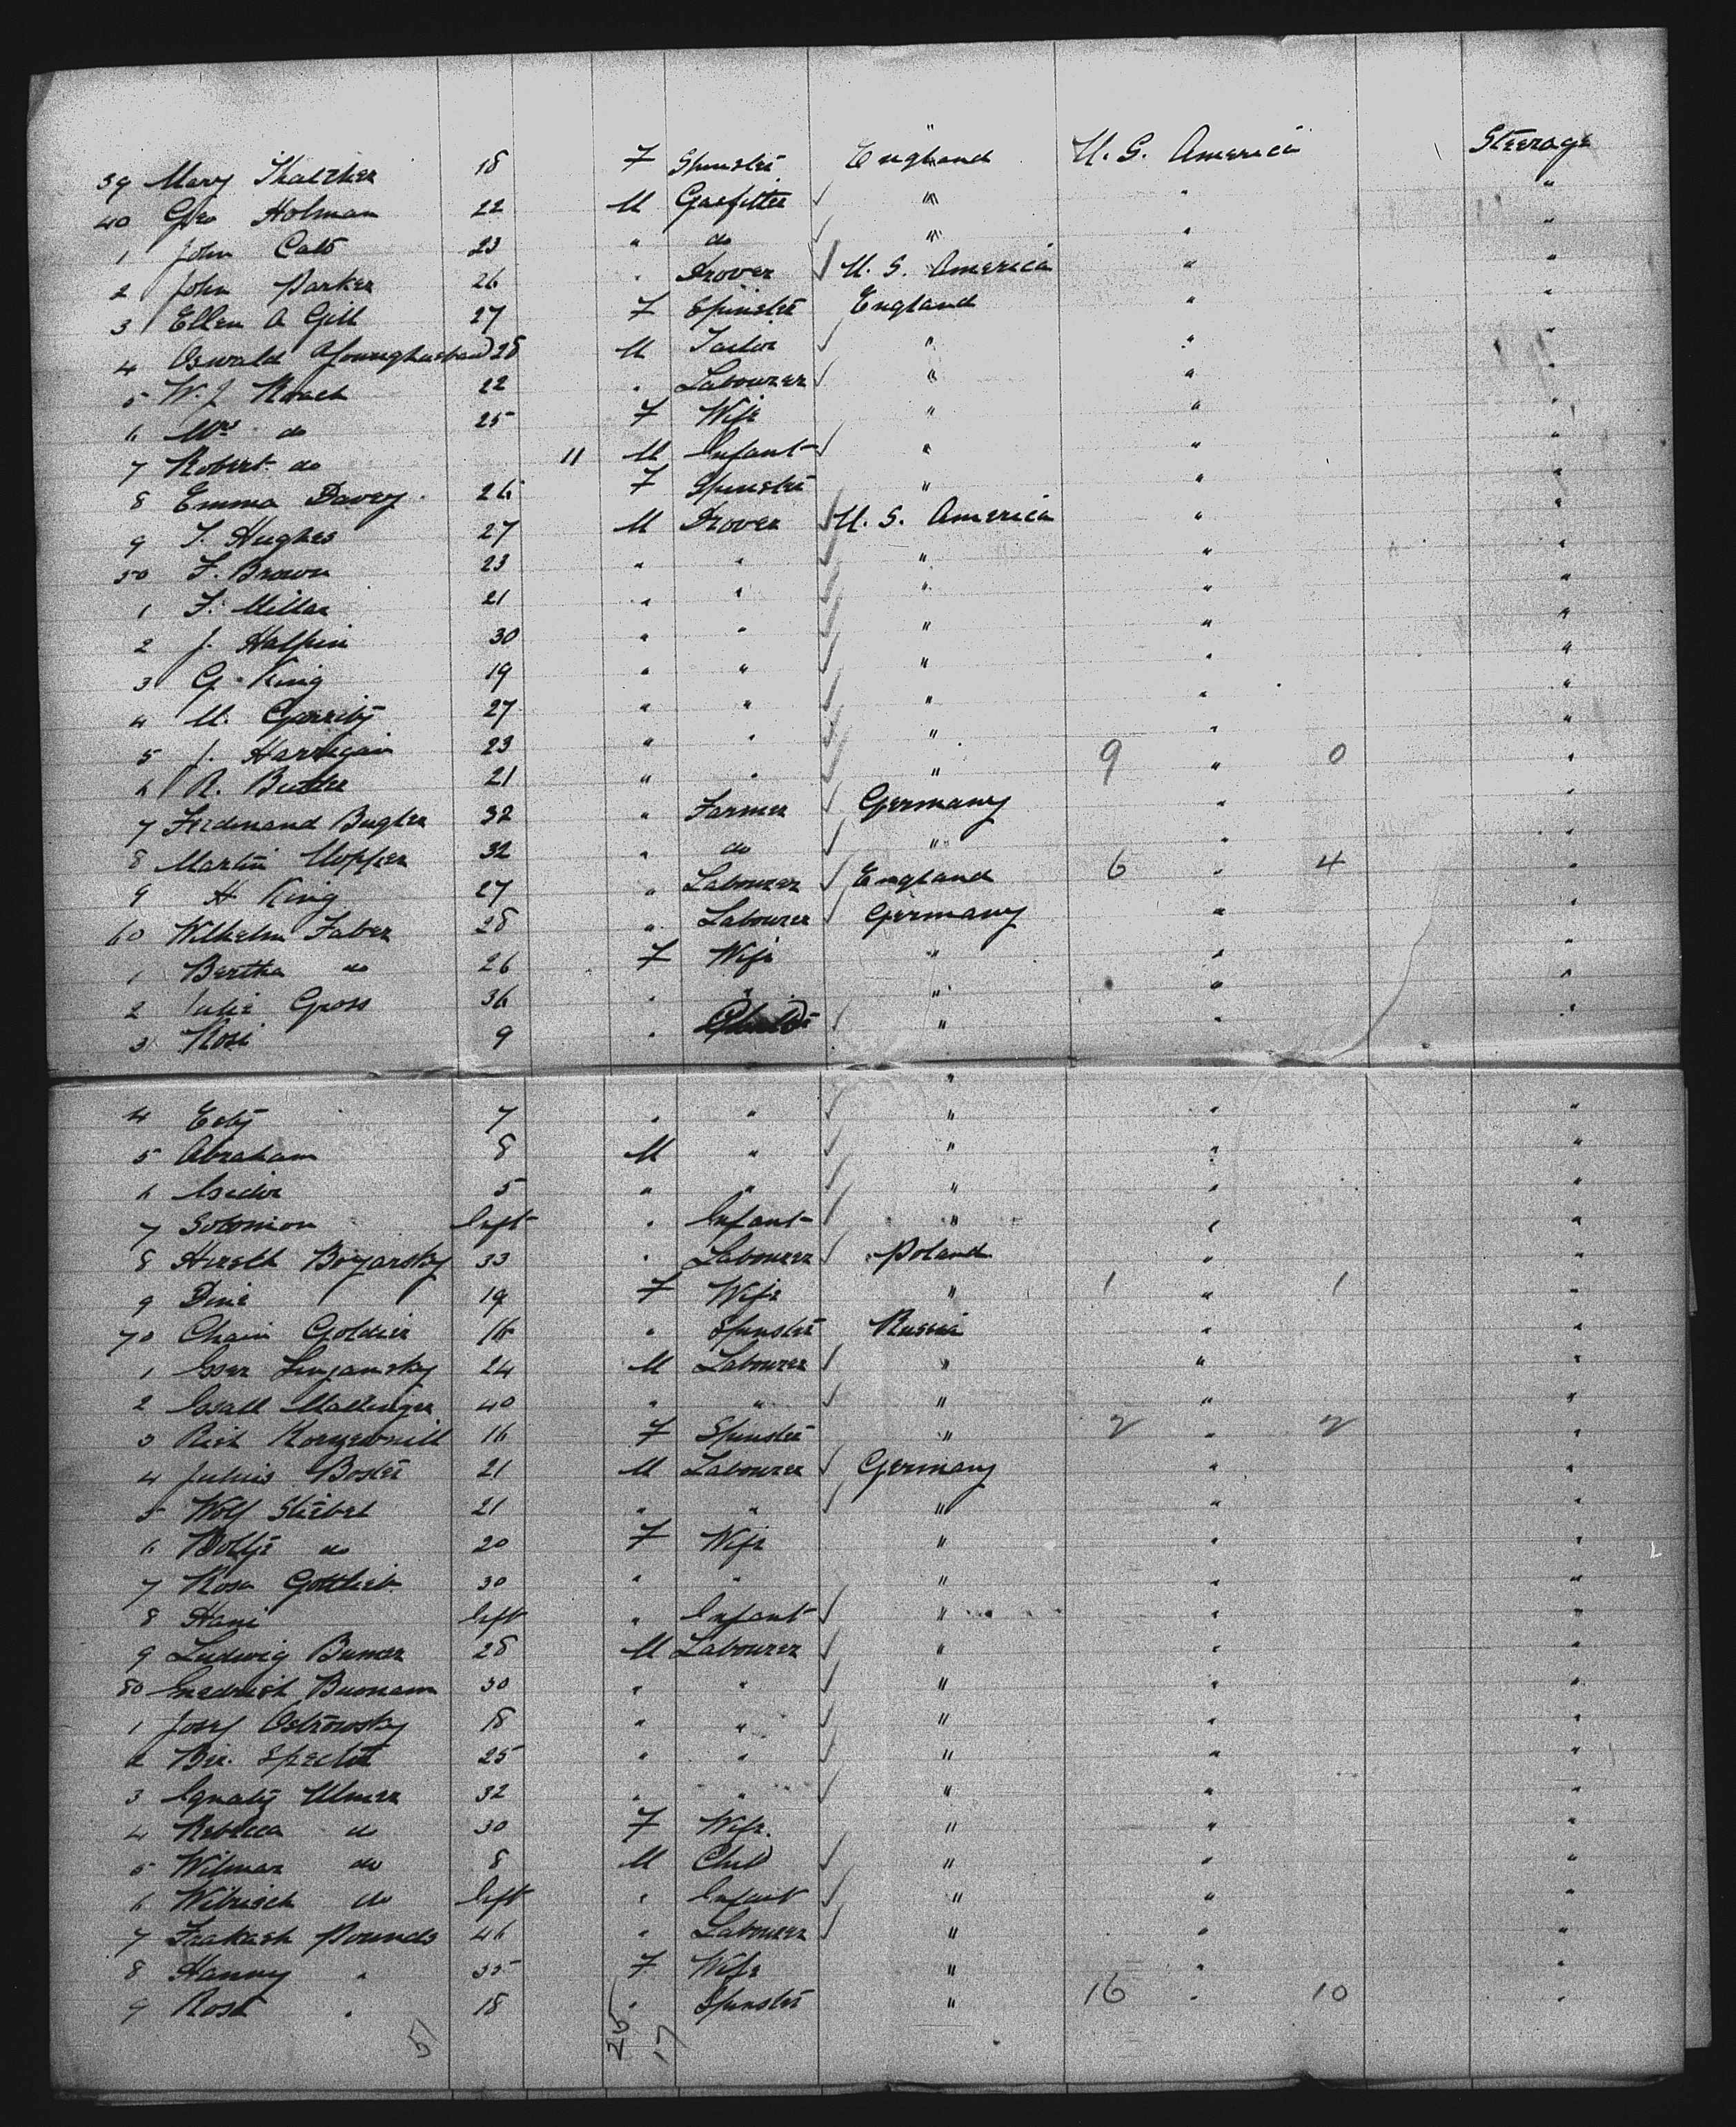 "
39 Mary Thatcher 18 F Spinster England U. S. America Steerage
40 Geo Holman 22 M Gasfitter " " "
1 John Cato 23 " do " " "
2 John Parker 26 " Drover U. S. America " "
3 Ellen A Gill 27 F Spinster England " "
4 Oswald Younghusband 28 M Tailor " " "
5 W. J Roach 22 " Labourer " " "
6 Mrs do 25 F Wife " " "
7 Robert do 11 M Infant " " "
8 Emma Davey 26 F Spinster " " "
9 T. Hughes 27 M Drover U. S. America " "
50 F. Brown 23 " " " " "
1 F. Millar 21 " " " " "
2 J. Halpin 30 " " " " "
3 G. King 19 " " " " "
4 M. Garrity 27 " " " " "
5 J. Harrigan 23 " " " " "
6 R. Butler 21 " " " 9 " 0 "
7 Ferdinand Bugler 32 " Farmer Germany " "
8 Martin Hopper 32 " do " " "
9 H King 27 " Labourer England 6 " 4 "
60 Wilhelm Faber 28 " Labourer Germany " "
1 Bertha do 26 F Wife " " "
2 Julie Gross 36 " " " " "
3 Rosi 9 " Child " " "
4 Esty 7 " " " " "
5 Abraham 8 M " " " "
6 Isidor 5 " " " " "
7 Solomon Inft " Infant " " "
8 Hirsch Boyarsky 33 " Labourer Poland " "
9 Dine 19 F Wife " 1 " 1 "
70 Chain Goldier 16 " Spinster Russia " "
1 24 M Labourer " " "
2 40 " " " " "
3 16 F Spinster " 2 " 2 "
4 Julius Boster 21 M Labourer Germany " "
5 Wolf Stiebel 21 " " " " "
6 do 20 F Wife " " "
7 Rosa Gottlieb 30 " " " " "
8 Hani Inft " Infant " " "
9 Ludwig Bumer 28 M Labourer " " "
80 30 " " " " "
1 Josef Ostrowsky 18 " " " " "
2 Ber. Specht 25 " " " " "
3 Ignatz Ulmer 32 " " " " "
4 Rebecca do 30 F Wife. " " "
5 Wilmar do 8 M Child " " "
6 do Inft " Infant " " "
7 Pounds 46 " Labourer " " "
8 Hanny " 35 F Wife " " "
9 Rosa " 18 " Spinster " 16 " 10 "
51 25 17